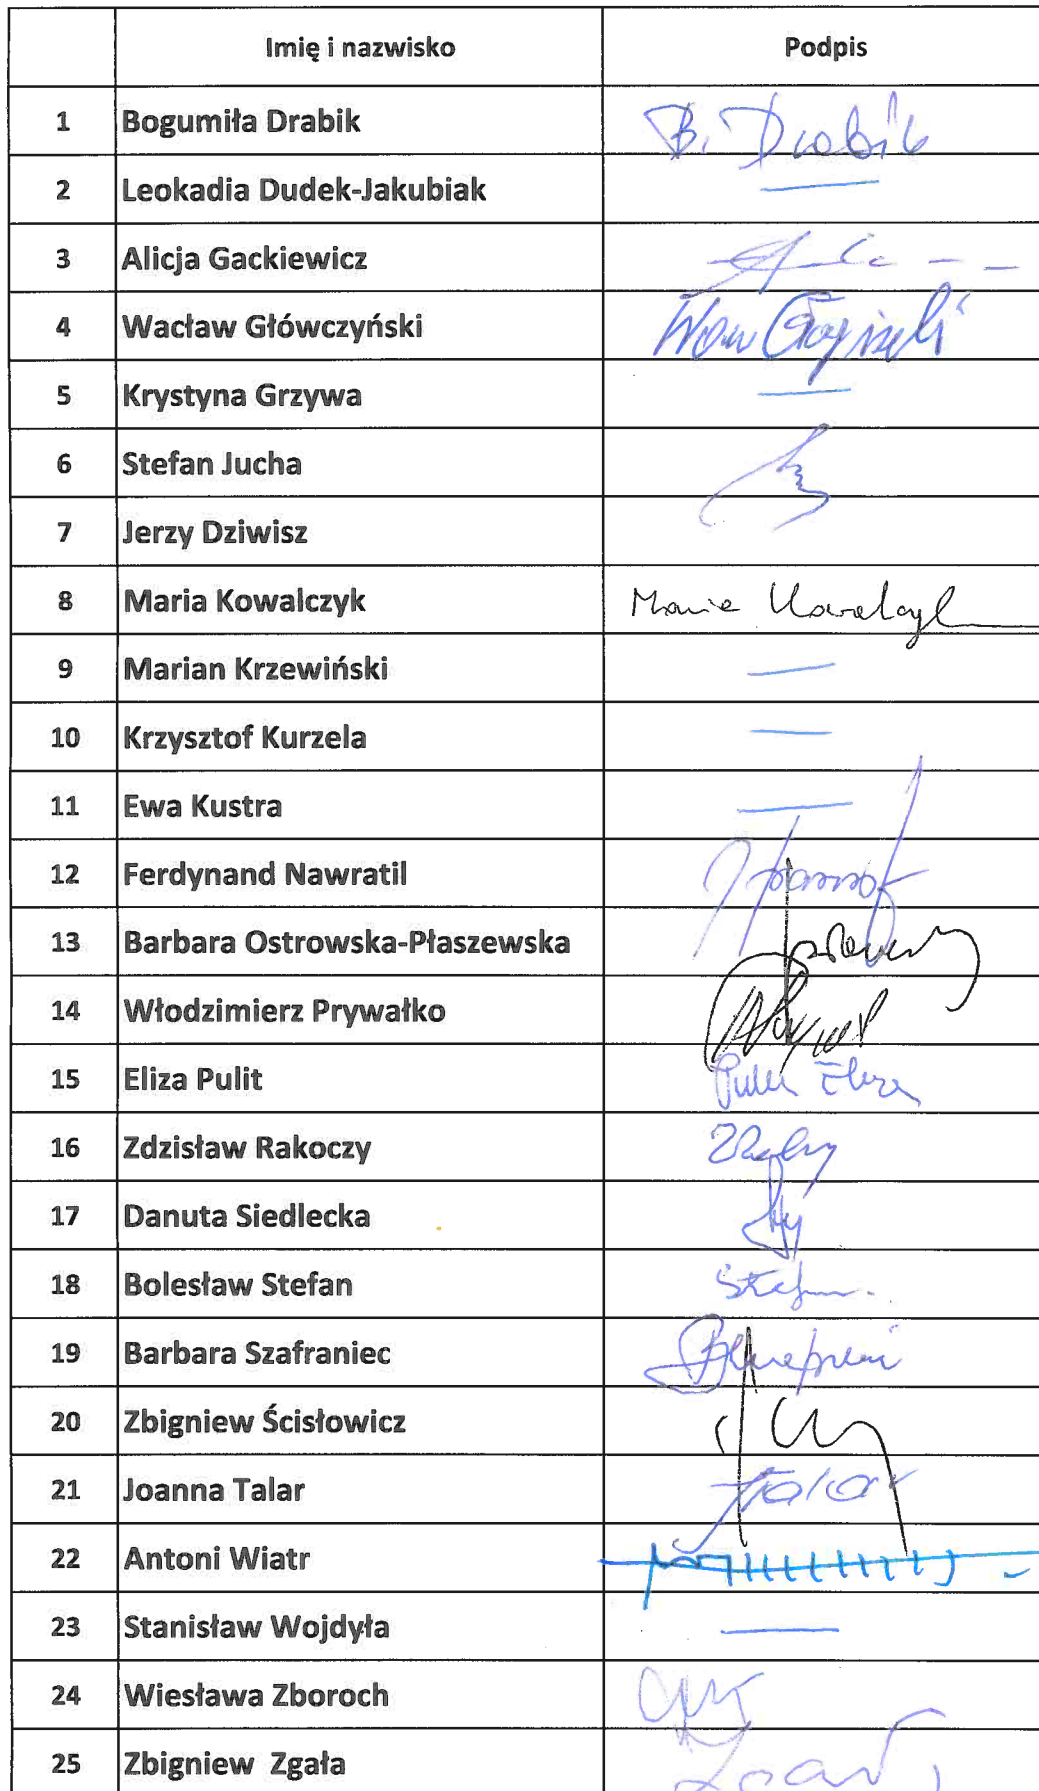 Imię i nazwisko Podpis
1 Bogumiła Drabik B. Drabik
2 Leokadia Dudek-Jakubiak —
3 Alicja Gackiewicz
4 Wacław Główczyński
5 Krystyna Grzywa —
6 Stefan Jucha
7 Jerzy Dziwisz
8 Maria Kowalczyk Maria Kowalczyk
9 Marian Krzewiński —
10 Krzysztof Kurzela —
11 Ewa Kustra —
12 Ferdynand Nawratil
13 Barbara Ostrowska-Płaszewska
14 Włodzimierz Prywałko
15 Eliza Pulit Pulit Eliza
16 Zdzisław Rakoczy
17 Danuta Siedlecka
18 Bolesław Stefan Stefan
19 Barbara Szafraniec
20 Zbigniew Ścisłowicz
21 Joanna Talar Talar
22 Antoni Wiatr
23 Stanisław Wojdyła —
24 Wiesława Zboroch
25 Zbigniew Zgała